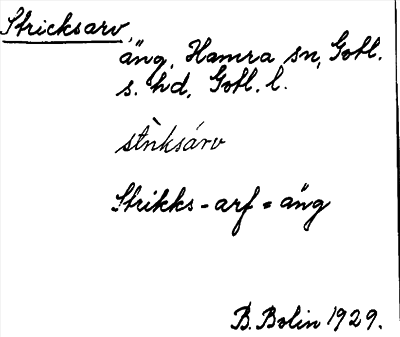 Stricksarv,
äng, Hamra sn, Gotl.
s. hd, Gotl. l.
strìksárv
Strikks - arf = äng
B. Bolin 1929.